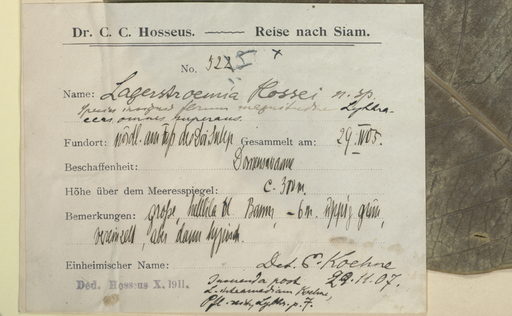 Dr. C. C. Hosseus. — Reise nach Siam.
No. 522
Name: Lagerstroemia Hossei n. sp.
species insignis florum magnitudine Lythra-
ceas omnes superans.
Fundort: nördl. am Fuß des Doi Sutep Gesammelt am: 29. III 05.
Beschaffenheit:
Höhe über dem Meeresspiegel: c. 300 m.
Bemerkungen: große, hellila bl. Baum, -6 m. üppig grün,
vereinzelt aber dann typisch.
Einheimischer Name: Det. E. Koehne
29.11.07.
Ded. Hosseus X. 1911.
Inserenda post
L. intermediam Koehne,
Pfl. reich, Lythr. p. 7.